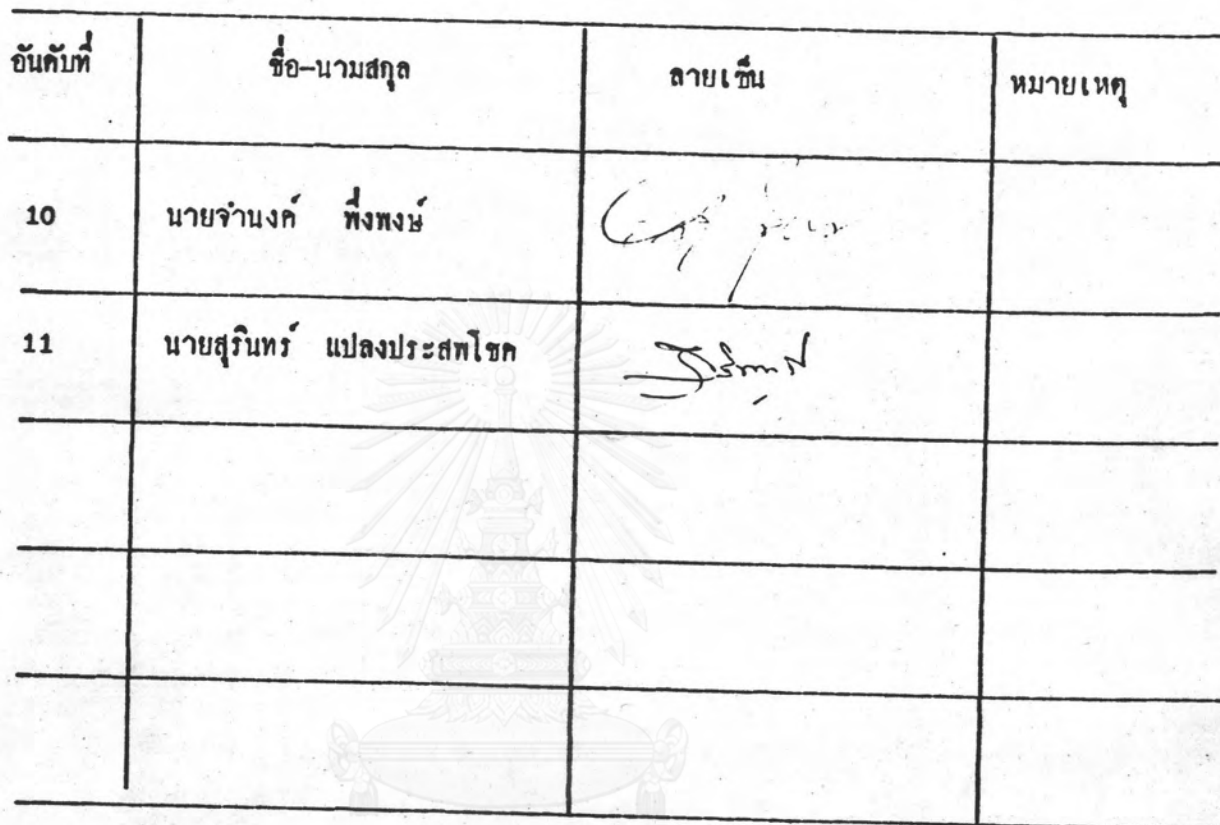 อันดับที่ ชื่อ-นามสกุล ลายเซ็น หมายเหตุ
10 นายจำนงค์ พึ่งพงษ์
11 นายสุรินทร์ แปลงประสพโชค